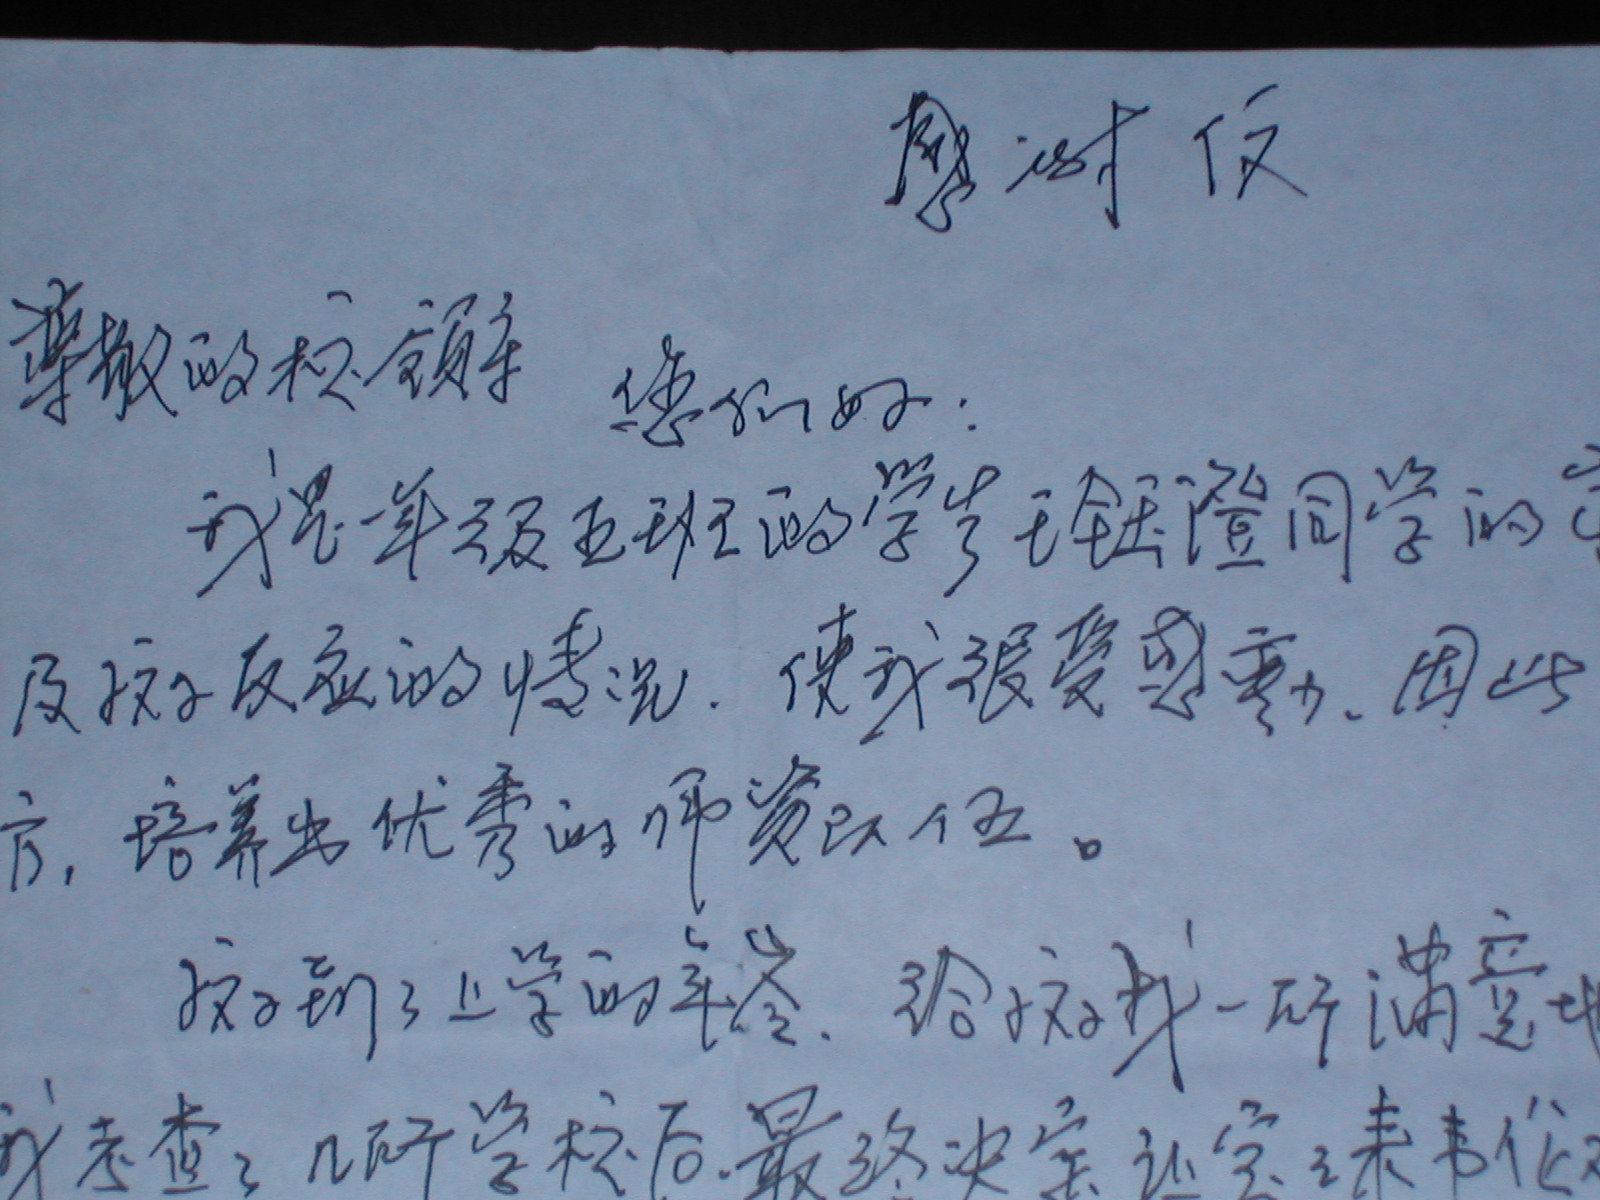 感谢信
尊敬的校领导 您们好:
我是一年级五班的学生王钰澄同学的家
及孩子反应的情况. 使我很受感动、因此
方, 培养出优秀的师资队伍。
孩子到了上学的年岁. 给孩子找一所满意地
我考查了几所学校后. 最终决定让宝宝来韦伦